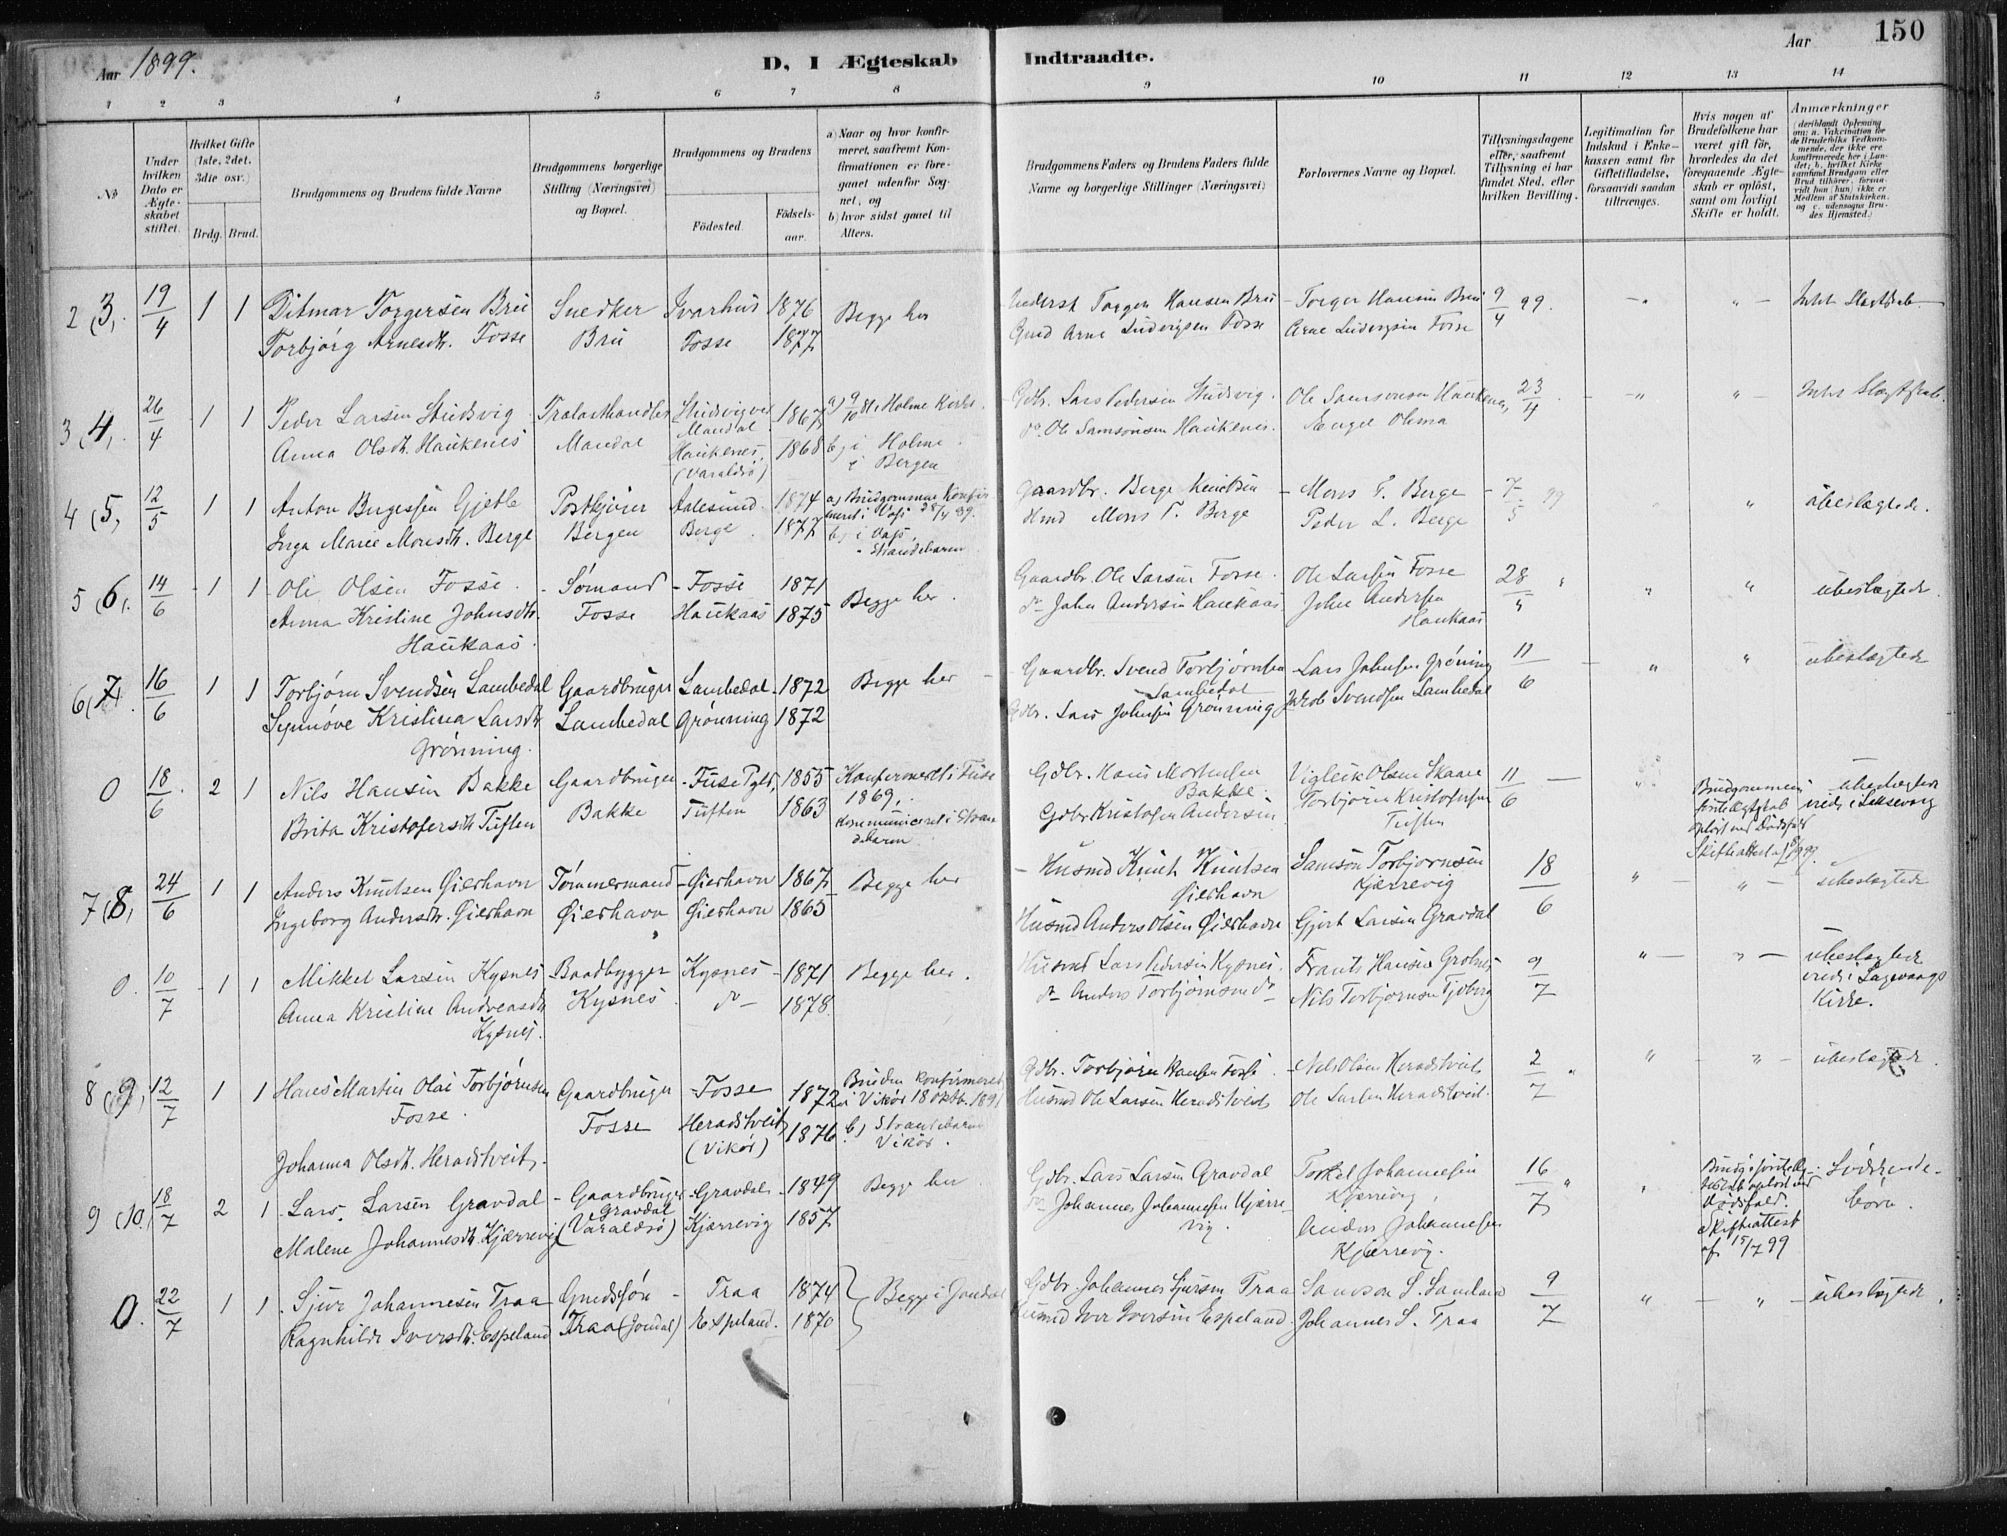 Aar 1899. D, I Ægteskab Indtraadte. Aar 150
1 2 3 4 5 6 7 8 9 10 11 12 13 14
№
Under hvilken Dato er Ægteskabet stiftet.
Hvilket Gifte (1ste, 2det, 3die osv.)
Brdg. Brud.
Brudgommens og Brudens fulde Navne
Brudgommens borgerlige Stilling (Næringsvei) og Bopæl.
Brudgommens og Brudens
Fødested.
Fødselsaar.
a) Naar og hvor konfirmeret, saafremt Konfirmationen er foregaaet udenfor Sognet, og
b) hvor sidst gaaet til Alters.
Brudgommens Faders og Brudens Faders fulde Navne og borgerlige Stillinger (Næringsvei)
Forlovernes Navne og Bopæl.
Tillysningsdagene eller, saafremt Tillysning ei har fundet Sted, efter hvilken Bevilling.
Legitimation for Indskud i Enkekassen samt for Giftetilladelse, forsaavidt saadan tiltrænges.
Hvis nogen af Brudefolkene har været gift før, hvorledes da det foregaaende Ægteskab er opløst, samt om lovligt Skifte er holdt.
Anmærkninger
2 (3, 19/4 1 1 Ditmar Torgersen Bru Snedker Ivarhus 1876 Begge her Torger Hansen Bru - Torger Hansen Bru 9/4 99. Intet Slægtskab
Torbjørg Arnesdtr. Fosse Bru Fosse 1877 Gmd Arne Ludvigsen Fosse Arne Ludvigsen Fosse
3 (4, 26/4 1 1 Peder Larsen Studsvig Trælasthandler Studsvig 1867 Holme Kirke. Gdbr. Lars Pedersen Studsvig. Ole Samsonsen Haukenes, 23/4 Intet Slægtskab.
Mandal
Anna Olsdtr. Haukenes Mandal Haukenes, 1868 b) i Holme do. Ole Samsonsen Haukenes.
(Varaldsø) i Bergen
4 (5, 12/5 1 1 Anton Bergessen Gjetle Postkjører Aalesund. 1874 a) Brudgommen Konfirmeret i Gaardbr. Berge - Mons T. Berge - 7/5 99 ubeslægtede.
Inga Marie Monsdtr. Berge Bergen Berge. 1877 b) i Mons T. Berge Peder L. Berge
Strandebarm
5 (6. 14/6 1 1 Ole Olsen Fosse. - Sømand - Fosse 1871 Begge her. Gaardbr. Ole Larsen Fosse. Ole Larsen Fosse 28/5 ubeslægtede.
Anna Kristine Johnsdtr. Fosse Haukaas 1875 do John Andersen Haukaas John Andersen
Haukaas. Haukaas
6 (7. 16/6 1 1 Torbjørn Svendsen Lambedal Gaardbruger Lambedal - 1872 Begge her - Gaardbr. Svend Torbjørnsen - Lars Johnsen Grønning 11/6 ubeslægtede
Lambedal
Synnøve Kristina Larsdtr. Lambedal Grønning 1872 Gdbr. Lars Johnsen Grønning Jakob Svendsen Lambedal
Grønning.
0 18/6 2 1 Nils Hansen Bakke Gaardbruger - Fuse Pgld, 1855 Konfirmeret i Fuse Gdbr. Hans Mortensen Vigleik Olsen Skaare 11/6 Brudgommens ubeslægtede
1869, Bakke.
Brita Kristofersdtr. Tuften Bakke Tuften 1863 Kommuniceret i Strandebarm Gdbr Kristofer Andersen Torbjørn Kristofersen opløst ved Dødsfald viede i
Tuften
7 (8, 24/6 1 1 Anders Knutsen Øierhavn Tømmermand - Øierhavn 1867 Begge her - Husmd Knut Knutsen Samson Torbjørnsen 18/6 ubeslægtede
Øierhavn Kjærrevig
Ingeborg Andersdtr. Øierhavn Øierhavn Øierhavn 1865 Husmd Anders Olsen Øierhavn Gjert Larsen Gravdal
0. 10/7 1 1 Mikkel Larsen Kysnes Baadbygger Kysnes - 1871 Begge her. Husmd Lars Pedersen Kysnes. Frants Hansen 9/7 ubeslægtede
Anna Kristine Andreasdtr. Kysnes. do - 1878. do Anders Torbjørnsen do Nils Torbjørnsen viede i
Kysnes. Kirke.
8 (9, 12/7 1 1 Hans Martin Olai Torbjørnsen Gaardbruger - Fosse 1872 Bruden konfirmeret Gdbr. Torbjørn Hansen Fosse. - Nils Olsen Heradstveit 2/7 ubeslægtede.
Fosse. i Vikør 18 oktbr. 1891
Fosse Heradstveit 1876 b) Strandebarm Husmd Ole Larsen Heradstveit Ole Larsen Heradstveit.
Johanna Olsdtr. Heradstveit. (Vikør) Vikør.
9 (10. 18/7 2 1 Lars Larsen Gravdal - Gaardbruger - Gravdal - 1849 Begge her Gdbr. Lars Larsen Gravdal Torkel Johannesen 16/7 Søskendebørn.
Gravdal Kjærrevig, Dødsfald.
Malene Johannesdtr. Kjærrevig (Varaldsø) Kjærrevig 1857 do Johannes Johannesen Kjærrevig Anders Johannesen Skifteattest
Kjærrevig. af 15/7 99
0. 22/7 1 1 Sjur Johannesen Traa Gmdssøn - Traa 1874 Begge i Jondal Gdbr. Johannes Sjursen Traa Samson S. Samland 9/7 ubeslægtede.
Ragnhilde Iversdtr. Espeland Traa (Jondal) Espeland. 1870 Husmd Iver Iversen Espeland. Johannes S. Traa